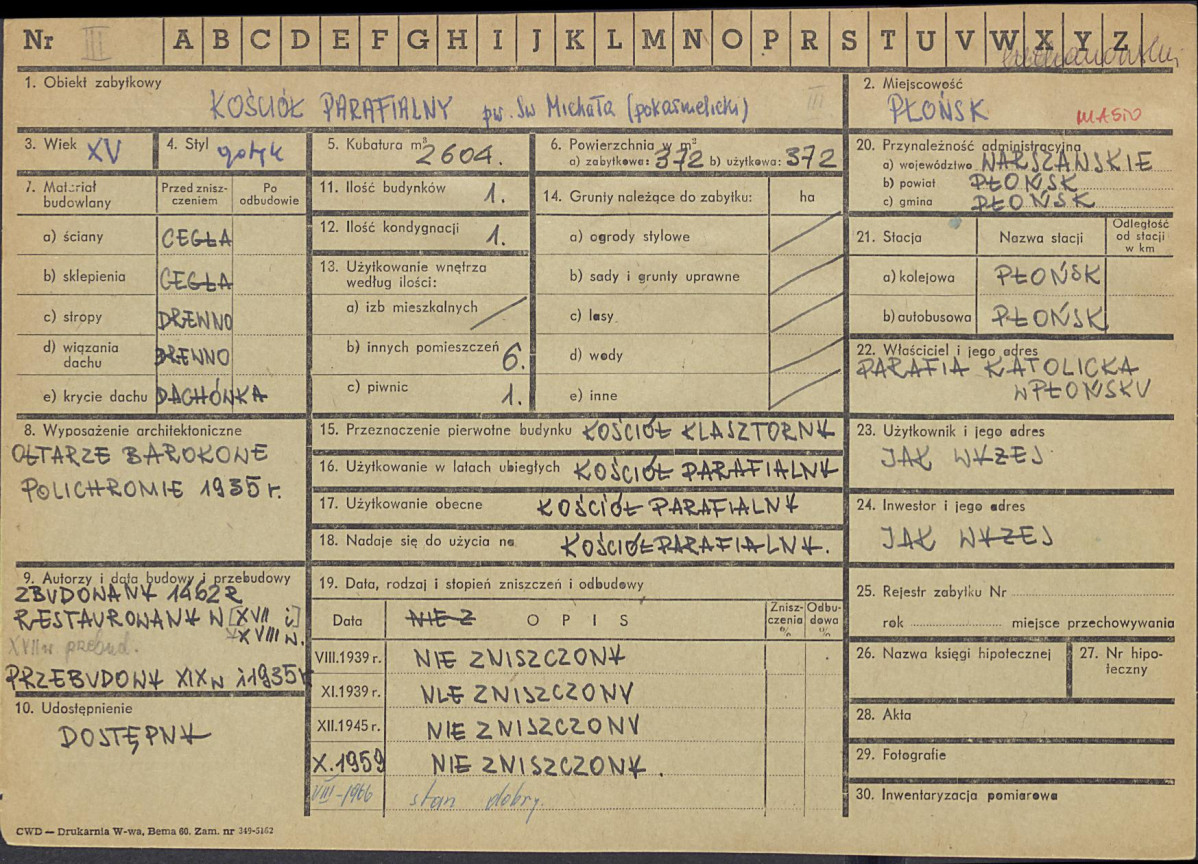 Nr III A B C D E F G H I J K L M N O P R S T U V W X Y Z
1. Obiekt zabytkowy
KOŚCIÓŁ PARAFIALNY pw. Św Michała (pokarmelicki) III
2. Miejscowość
PŁOŃSK MIASTO
3. Wiek XV
4. Styl gotyk
5. Kubatura m³ 2604.
6. Powierzchnia w m²
a) zabytkowa: 372 b) użytkowa: 372
20. Przynależność administracyjna
a) województwo WARSZAWSKIE
b) powiat PŁOŃSK
c) gmina PŁOŃSK
7. Materiał budowlany
Przed znisz-
czeniem
Po
odbudowie
a) ściany CEGŁA
b) sklepienia CEGŁA
c) stropy DREWNO
d) wiązania
dachu DREWNO
e) krycie dachu DACHÓWKA
11. Ilość budynków 1.
12. Ilość kondygnacji 1.
13. Użytkowanie wnętrza
według ilości:
a) izb mieszkalnych
b) innych pomieszczeń 6.
c) piwnic 1.
14. Grunty należące do zabytku: ha
a) ogrody stylowe
b) sady i grunty uprawne
c) lasy
d) wody
e) inne
21. Stacja Nazwa stacji
Odległość
od stacji
w km
a) kolejowa PŁOŃSK
b) autobusowa PŁOŃSK
22. Właściciel i jego adres
PARAFIA KATOLICKA
W PŁOŃSKU
8. Wyposażenie architektoniczne
OŁTARZE BAROKOWE
POLICHROMIE 1935 r.
15. Przeznaczenie pierwotne budynku KOŚCIÓŁ KLASZTORNY
16. Użytkowanie w latach ubiegłych KOŚCIÓŁ PARAFIALNY
17. Użytkowanie obecne KOŚCIÓŁ PARAFIALNY
18. Nadaje się do użycia na KOŚCIÓŁ PARAFIALNY.
23. Użytkownik i jego adres
JAK WYŻEJ
24. Inwestor i jego adres
JAK WYŻEJ
9. Autorzy i data budowy i przebudowy
ZBUDOWANY 1462 R
RESTAUROWANY W [XVII i]
XVIII W.
XVII w przebud.
PRZEBUDOWY XIX W i 1935 r
10. Udostępnienie
DOSTĘPNY
19. Data, rodzaj i stopień zniszczeń i odbudowy
Data NIE Z OPIS
Znisz-
czenia
%
Odbu-
dowa
%
VIII.1939 r. NIE ZNISZCZONY
XI.1939 r. NIE ZNISZCZONY
XII.1945 r. NIE ZNISZCZONY
X.1959 NIE ZNISZCZONY.
VIII-1966 stan dobry.
25. Rejestr zabytku Nr
rok miejsce przechowywania
26. Nazwa księgi hipotecznej
27. Nr hipo-
teczny
28. Akta
29. Fotografie
30. Inwentaryzacja pomiarowa
CWD — Drukarnia W-wa, Bema 60. Zam. nr 349-5162